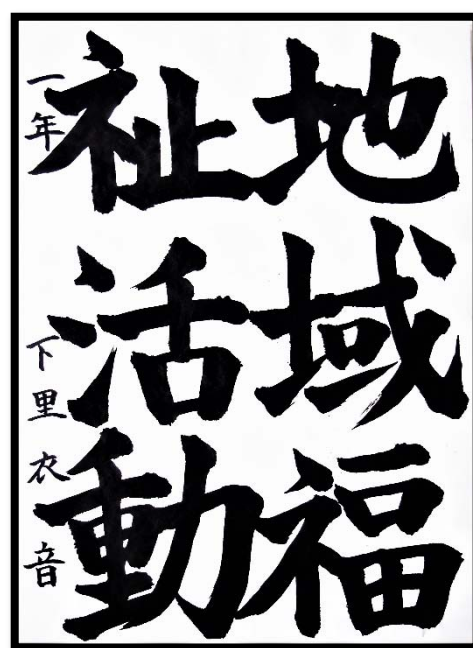 地域福
祉活動
一年 下里衣音